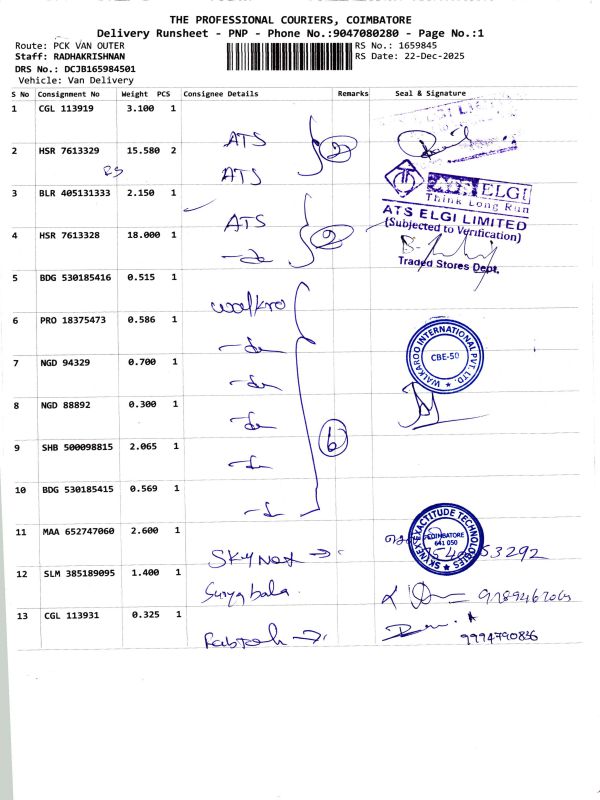 THE PROFESSIONAL COURIERS, COIMBATORE
Delivery Runsheet - PNP - Phone No.:9047080280 - Page No.:1
Route: PCK VAN OUTER
RS No.: 1659845
Staff: RADHAKRISHNAN
RS Date: 22-Dec-2025
DRS No.: DCJB165984501
Vehicle: Van Delivery
S No Consignment No Weight PCS Consignee Details Remarks Seal & Signature
1 CGL 113919 3.100 1 ATS
2 HSR 7613329 15.580 2 ATS
2
3 BLR 405131333 2.150 1 ATS
4 HSR 7613328 18.000 1 -do
2
ELGI
Think Long Run
ATS ELGI LIMITED
(Subjected to Verification)
Traded Stores Dept.
5 BDG 530185416 0.515 1 Walkro
6 PRO 18375473 0.586 1 -do
7 NGD 94329 0.700 1 -do
8 NGD 88892 0.300 1 -do
9 SHB 500098815 2.065 1 -do
10 BDG 530185415 0.569 1 -do
6
WALKAROO INTERNATIONAL PVT. LTD.
CBE-50
11 MAA 652747060 2.600 1 SKYNex
SKYNEX EXACTITUDE TECHNOLOGIES
COIMBATORE
641 050
12 SLM 385189095 1.400 1 Suryabala.
13 CGL 113931 0.325 1 Fabtech
9994790836